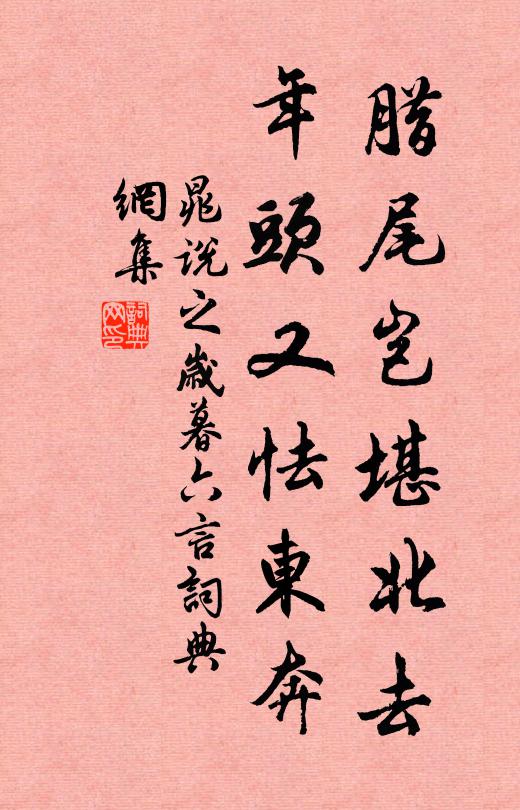 腊尾岂堪北去
年頭又怯東奔
晁説之歲暮六言詞典
網集
詞典
网印